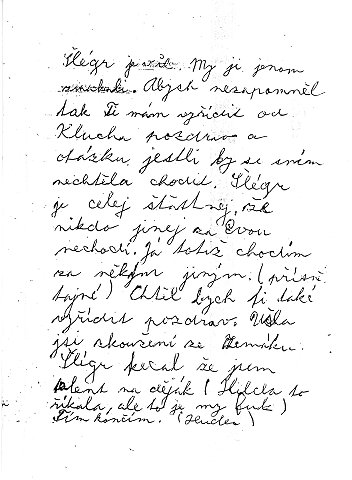 Šlégr je My ji jenom
Abych nezapomněl
tak Ti mám vyřídit od
Klucha pozdrav a
otázku jestli by se s ním
nechtěla chodit. Šlégr
je celej šťastnej, že
nikdo jinej za Evou
nechodí. Já totiž chodím
za někým jiným. (přísně
tajné) Chtěl bych ti také
vyřídit pozdrav.
jsi zkoušení ze Zemáku.
Šlégr kecal že jsem
talent na děják (to
říkala, ale to je my fuk)
Tím končím.